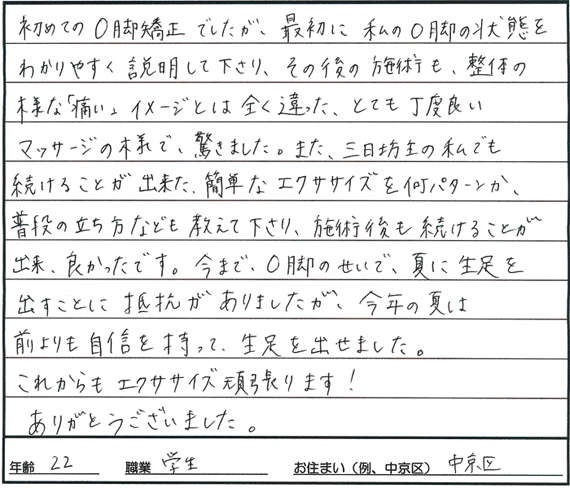 初めてのO脚矯正でしたが、最初に私のO脚の状態を
わかりやすく説明して下さり、その後の施術も、整体の
様な「痛い」イメージとは全く違った、とても丁度良い
マッサージの様で、驚きました。また、三日坊主の私でも
続けることが出来た、簡単なエクササイズを何パターンか、
普段の立ち方なども教えて下さり、施術後も続けることが
出来、良かったです。今まで、O脚のせいで、夏に生足を
出すことに抵抗がありましたが、今年の夏は
前よりも自信を持って、生足を出せました。
これからもエクササイズ頑張ります！
ありがとうございました。
年齢 22 職業 学生 お住まい（例、中京区） 中京区